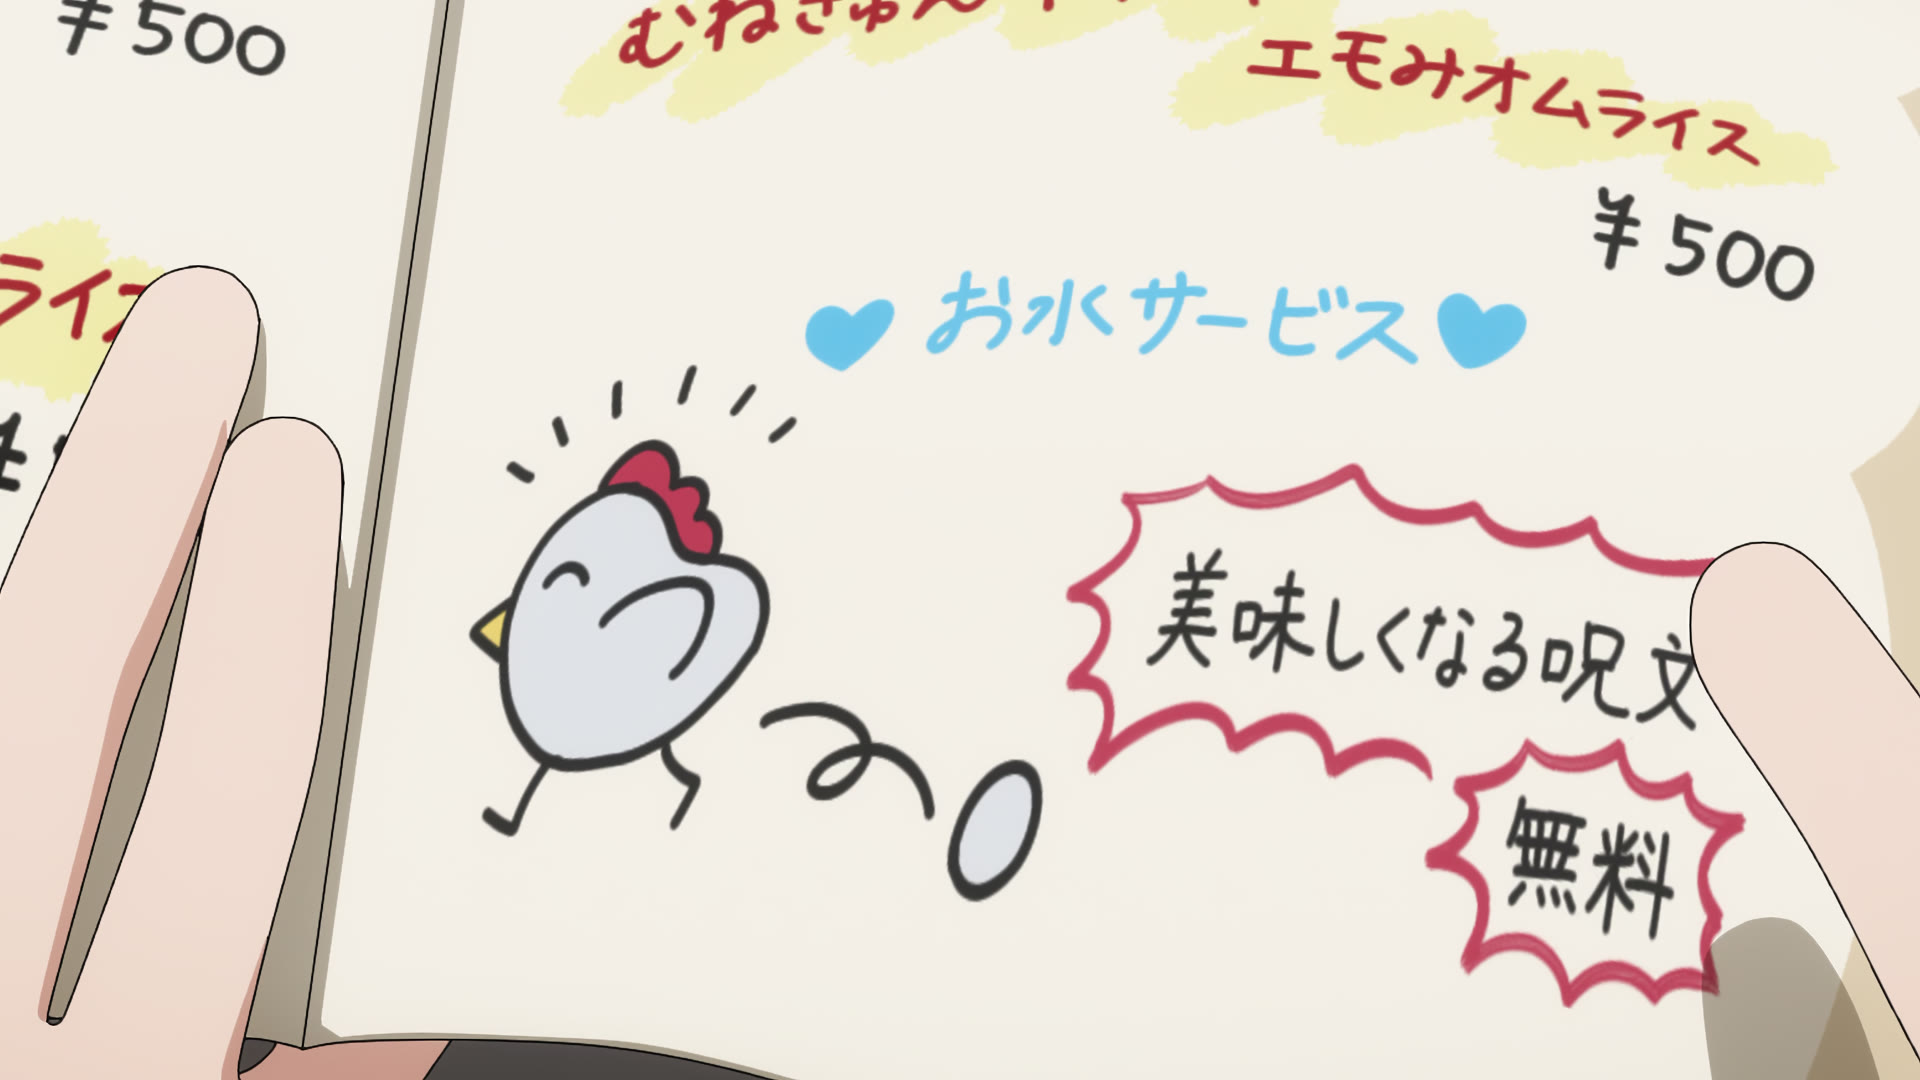 ¥500
ライス
むねきゅん
エモみオムライス
¥500
お水サービス
美味しくなる呪文
無料